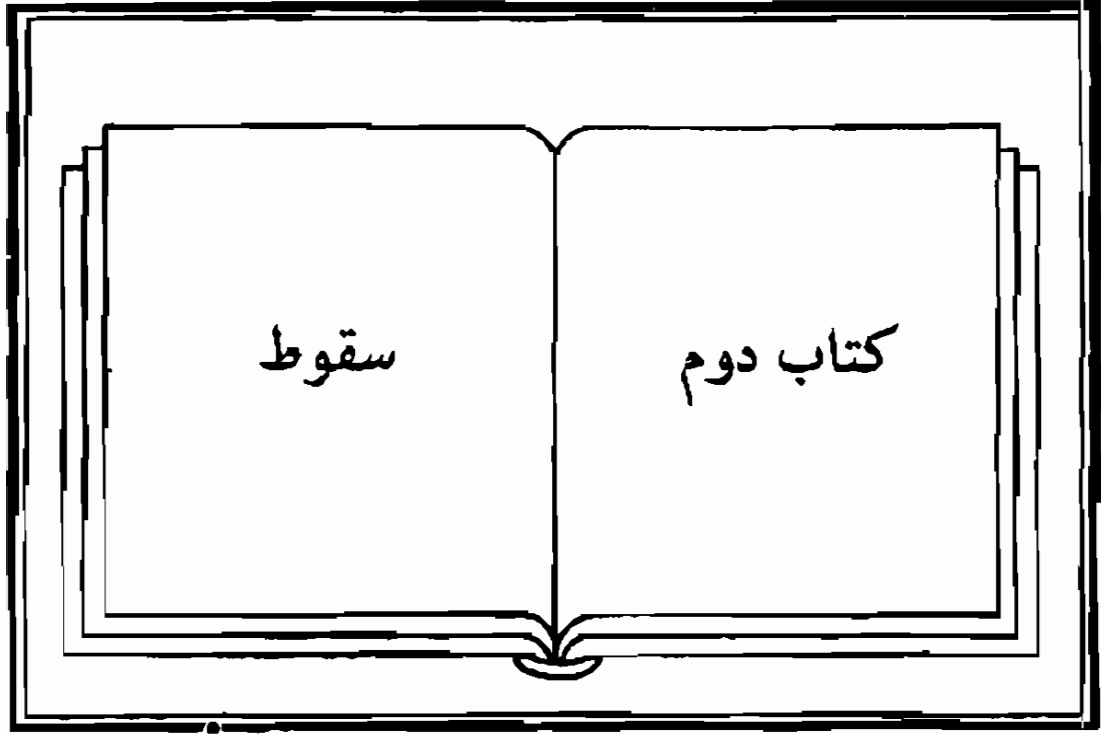 کتاب دوم
سقوط